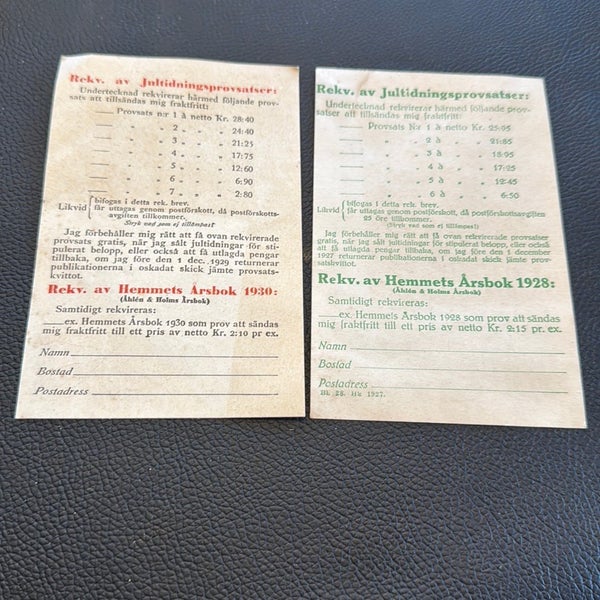 Rekv. av Jultidningsprovsatser:
Undertecknad rekvirerar härmed följande prov-
sats att tillsändas mig fraktfritt:
Provsats N:r 1 à netto Kr. 28:40
„ „ 2 „ „ „ 24:40
„ „ 3 „ „ „ 21:25
„ „ 4 „ „ „ 17:75
„ „ 5 „ „ „ 12:60
„ „ 6 „ „ „ 6:90
„ „ 7 „ „ „ 2:80
Likvid
bifogas i detta rek. brev.
får uttagas genom postförskott, då postförskotts-
avgiften tillkommer.
(Stryk vad som ej tillämpas!)
Jag förbehåller mig rätt att få ovan rekvirerade
provsats gratis, när jag sålt jultidningar för sti-
pulerat belopp, eller också att få utlagda pengar
tillbaka, om jag före den 1 dec. 1929 returnerar
publikationerna i oskadat skick jämte provsats-
kvittot.
Rekv. av Hemmets Årsbok 1930:
(Åhlén & Holms Årsbok)
Samtidigt rekvireras:
ex. Hemmets Årsbok 1930 som prov att sändas
mig fraktfritt till ett pris av netto Kr. 2:10 pr ex.
Namn
Bostad
Postadress
Rekv. av Jultidningsprovsatser:
Undertecknad rekvirerar härmed följande prov-
satser att tillsändas mig fraktfritt:
Provsats N:r 1 à netto Kr. 25:95
„ „ 2 à „ „ 21:85
„ „ 3 à „ „ 18:95
„ „ 4 à „ „ 17:25
„ „ 5 à „ „ 12:45
„ „ 6 à „ „ 6:50
Likvid
bifogas i detta rek. brev.
får uttagas genom postförskott, då postförskottsavgiften
25 öre tillkommer.
(Stryk vad som ej tillämpas!)
Jag förbehåller mig rätt att få ovan rekvirerade provsatser
gratis, när jag sålt jultidningar för stipulerat belopp, eller också
att få utlagda pengar tillbaka, om jag före den 1 december
1927 returnerar publikationerna i oskadat skick jämte prov-
satskvittot.
Rekv. av Hemmets Årsbok 1928:
(Åhlén & Holms Årsbok)
Samtidigt rekvireras:
ex. Hemmets Årsbok 1928 som prov att sändas
mig fraktfritt till ett pris av netto Kr. 2:15 pr. ex.
Namn
Bostad
Postadress
Bl. 28. Hk 1927.